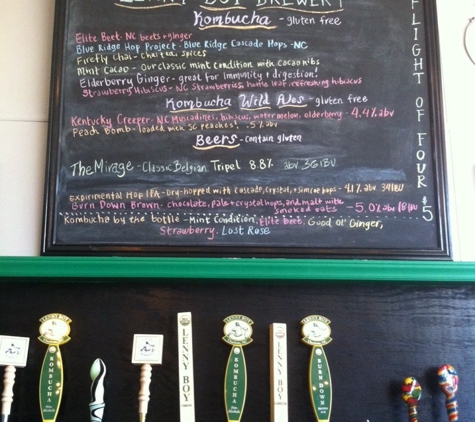 LENNY BOY BREWERY
Kombucha - gluten free
Elite Beet - NC beets + ginger
Blue Ridge Hop Project - Blue Ridge Cascade Hops - NC
Firefly Chai - chai tea, spices
Mint Cacao - Our classic mint condition with cacao nibs
Elderberry Ginger - great for immunity + digestion!
Strawberry Hibiscus - NC Strawberries, nettle leaf, refreshing hibiscus
Kombucha Wild Ales - gluten free
Kentucky Creeper - NC Muscadines, hibiscus, watermelon, elderberry - 4.4% abv
Peach Bomb - loaded with SC peaches! .5% abv
Beers - contain gluten
The Mirage - Classic Belgian Tripel 8.8% abv 36 IBU
Experimental Hop IPA - Dry-hopped with cascade, crystal, + simcoe hops - 4.1% abv 39 IBU
Burn Down Brown - chocolate, pale + crystal hops, and malt with
smoked oats - 5.0% abv 18 IBU
Kombucha by the bottle - Mint Condition, Elite beet, Good Ol' Ginger,
Strawberry, Lost Rose
FLIGHT OF FOUR
$5
LENNY BOY
KOMBUCHA
LENNY BOY
KOMBUCHA
LENNY BOY
BURN DOWN